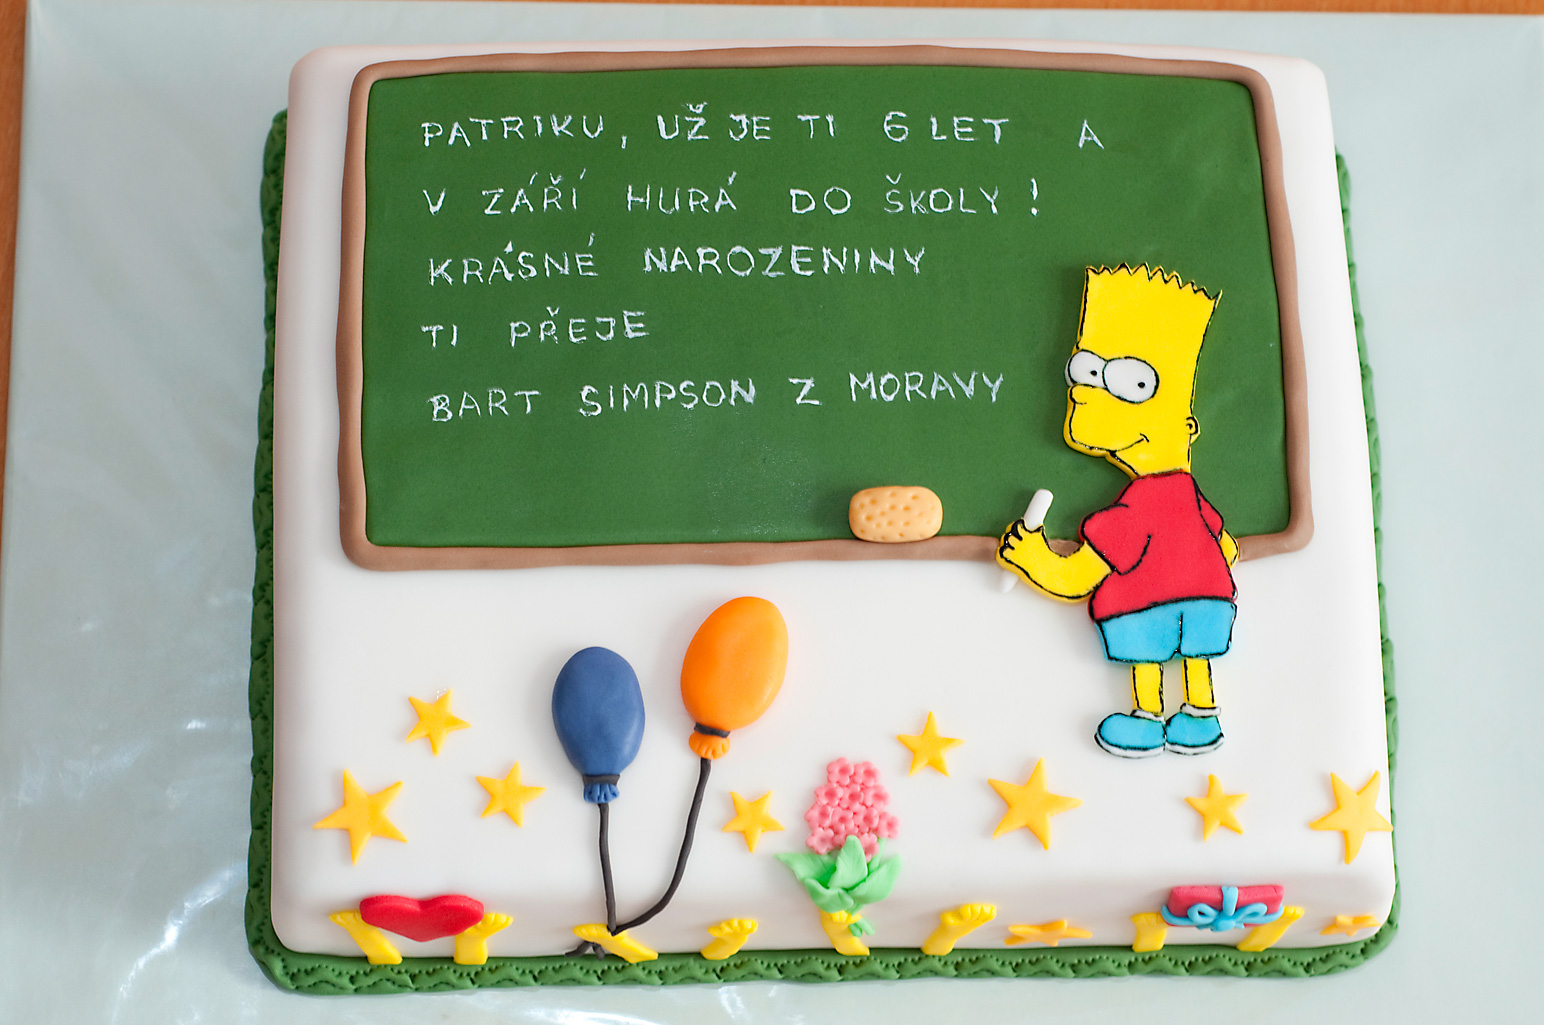 PATRIKU, UŽ JE TI 6 LET A
V ZÁŘÍ HURÁ DO ŠKOLY!
KRÁSNÉ NAROZENINY
TI PŘEJE
BART SIMPSON Z MORAVY